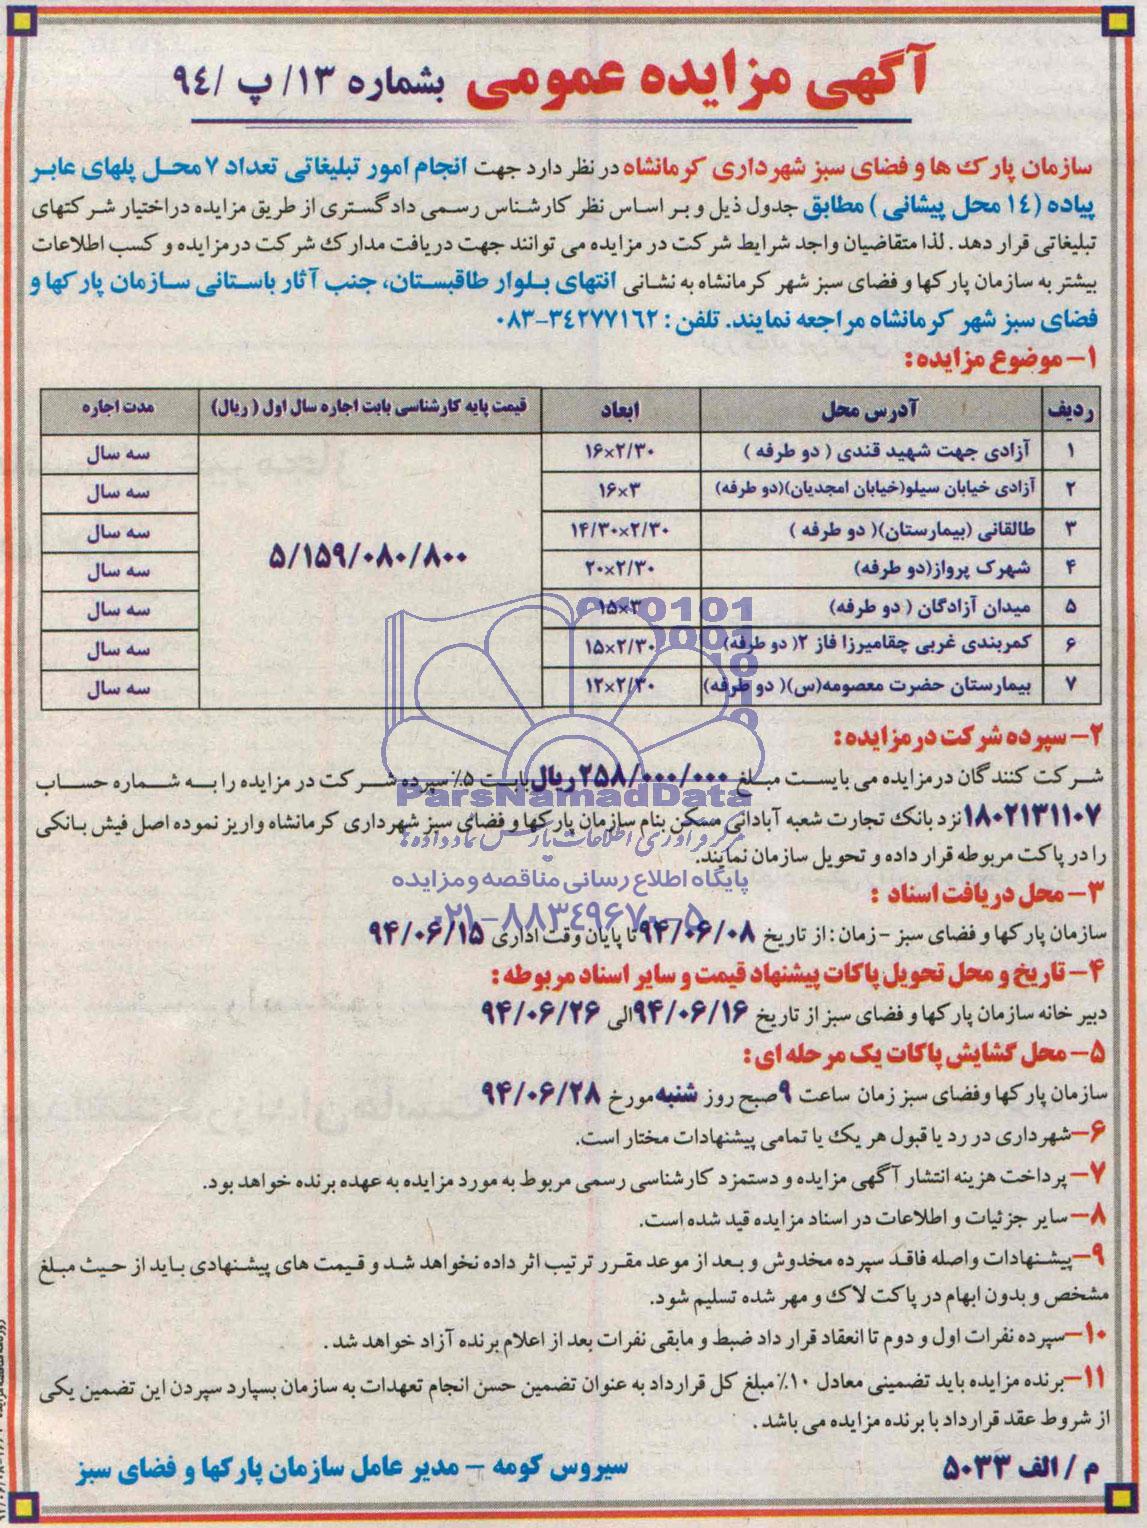 آگهی مزایده عمومی بشماره ۱۳/ پ /۹٤
سازمان پارک ها و فضای سبز شهرداری کرمانشاه در نظر دارد جهت انجام امور تبلیغاتی تعداد ۷ محل پلهای عابر
پیاده (۱٤ محل پیشانی) مطابق جدول ذیل و بر اساس نظر کارشناس رسمی دادگستری از طریق مزایده در اختیار شرکتهای
تبلیغاتی قرار دهد. لذا متقاضیان واجد شرایط شرکت در مزایده می توانند جهت دریافت مدارک شرکت در مزایده و کسب اطلاعات
بیشتر به سازمان پارکها و فضای سبز شهر کرمانشاه به نشانی انتهای بلوار طاقبستان، جنب آثار باستانی سازمان پارکها و
فضای سبز شهر کرمانشاه مراجعه نمایند. تلفن: ۳٤۲۷۷۱٦۲-۰۸۳
۱- موضوع مزایده:
ردیف آدرس محل ابعاد قیمت پایه کارشناسی بابت اجاره سال اول (ریال) مدت اجاره
۱ آزادی جهت شهید قندی (دو طرفه) ۱۶×۲/۳۰ سه سال
۲ آزادی خیابان سیلو(خیابان امجدیان)(دو طرفه) ۱۶×۳ سه سال
۳ طالقانی (بیمارستان)(دو طرفه) ۱۴/۳۰×۲/۳۰ سه سال
۴ شهرک پرواز(دو طرفه) ۲۰×۲/۳۰ سه سال
۵/۱۵۹/۰۸۰/۸۰۰
۵ میدان آزادگان (دو طرفه) ۱۵×۳ سه سال
۶ کمربندی غربی چقامیرزا فاز ۲(دو طرفه) ۱۵×۲/۳۰ سه سال
۷ بیمارستان حضرت معصومه(س)(دو طرفه) ۱۲×۲/۳۰ سه سال
۲- سپرده شرکت در مزایده:
شرکت کنندگان در مزایده می بایست مبلغ ۲۵۸/۰۰۰/۰۰۰ ریال بابت ۵٪ سپرده شرکت در مزایده را به شماره حساب
۱۸۰۲۱۳۱۱۰۷ نزد بانک تجارت شعبه آبادانی مسکن بنام سازمان پارکها و فضای سبز شهرداری کرمانشاه واریز نموده اصل فیش بانکی
را در پاکت مربوطه قرار داده و تحویل سازمان نمایند.
ParsNamadData
مرکز فرآوری اطلاعات پارس نماد داده ها
پایگاه اطلاع رسانی مناقصه و مزایده
۰۲۱-۸۸۳۴۹۶۷۰-۵
۳- محل دریافت اسناد :
سازمان پارکها و فضای سبز - زمان: از تاریخ ۹۴/۰۶/۰۸ تا پایان وقت اداری ۹۴/۰۶/۱۵
۴- تاریخ و محل تحویل پاکات پیشنهاد قیمت و سایر اسناد مربوطه:
دبیر خانه سازمان پارکها و فضای سبز از تاریخ ۹۴/۰۶/۱۶ الی ۹۴/۰۶/۲۶
۵- محل گشایش پاکات یک مرحله ای:
سازمان پارکها وفضای سبز زمان ساعت ۹ صبح روز شنبه مورخ ۹۴/۰۶/۲۸
۶- شهرداری در رد یا قبول هر یک یا تمامی پیشنهادات مختار است.
۷- پرداخت هزینه انتشار آگهی مزایده و دستمزد کارشناسی رسمی مربوط به مورد مزایده به عهده برنده خواهد بود.
۸- سایر جزئیات و اطلاعات در اسناد مزایده قید شده است.
۹- پیشنهادات واصله فاقد سپرده مخدوش و بعد از موعد مقرر ترتیب اثر داده نخواهد شد و قیمت های پیشنهادی باید از حیث مبلغ
مشخص و بدون ابهام در پاکت لاک و مهر شده تسلیم شود.
۱۰- سپرده نفرات اول و دوم تا انعقاد قرار داد ضبط و مابقی نفرات بعد از اعلام برنده آزاد خواهد شد.
۱۱- برنده مزایده باید تضمینی معادل ۱۰٪ مبلغ کل قرارداد به عنوان تضمین حسن انجام تعهدات به سازمان بسپارد سپردن این تضمین یکی
از شروط عقد قرارداد با برنده مزایده می باشد.
م / الف ۵۰۳۳ سیروس کومه - مدیر عامل سازمان پارکها و فضای سبز